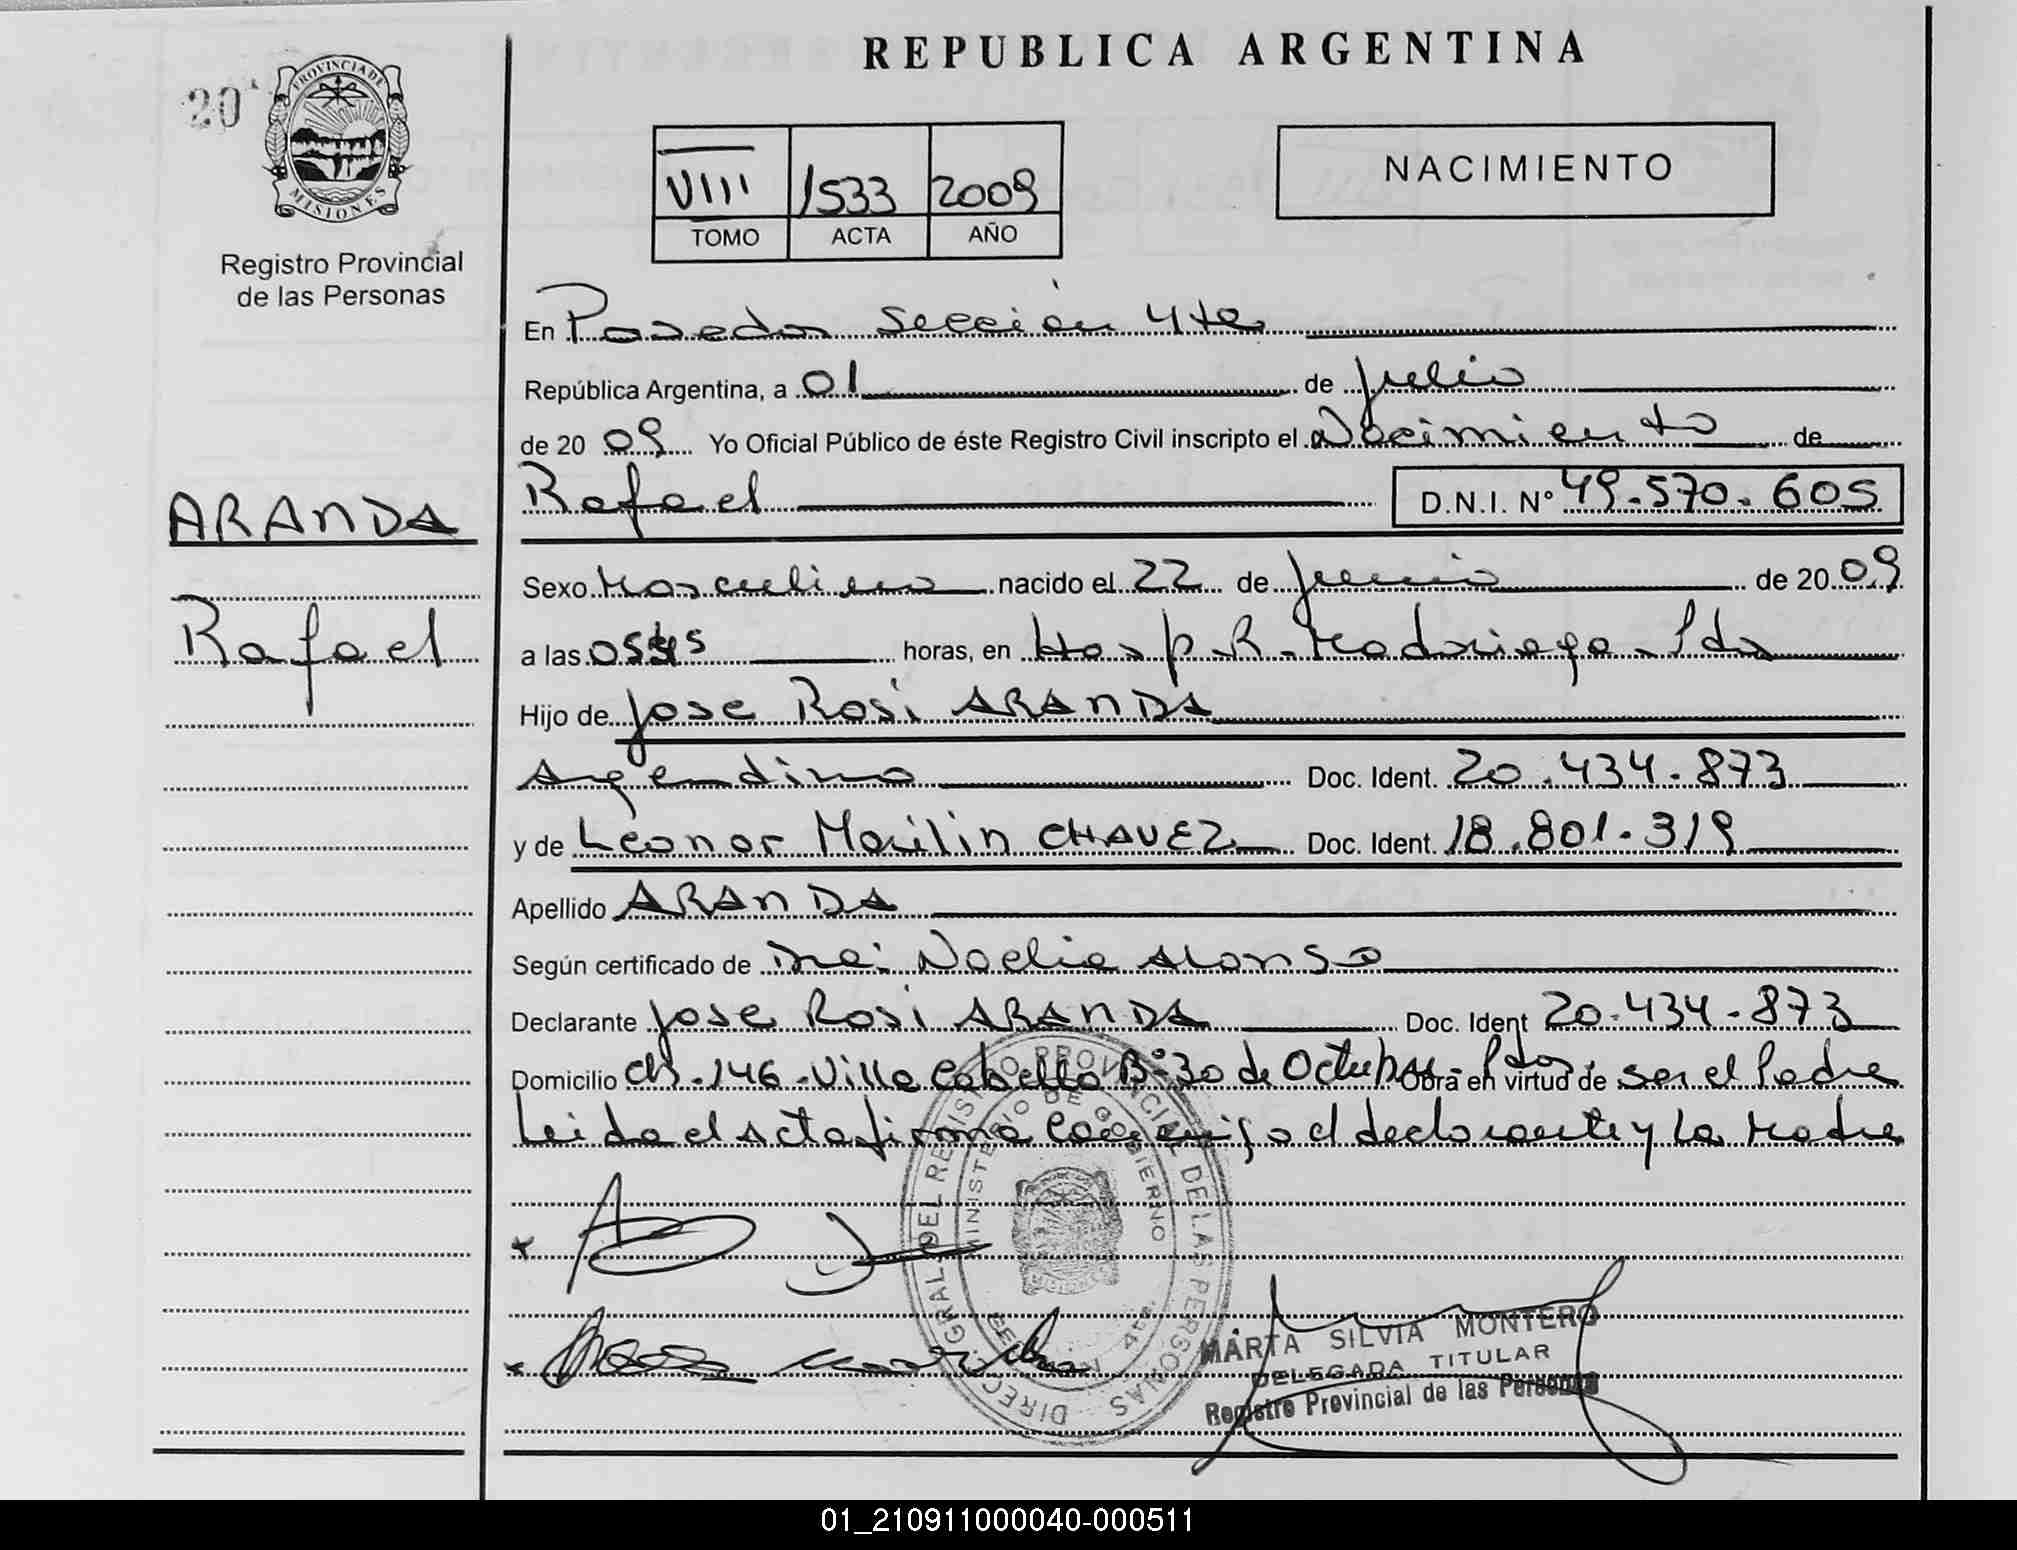 REPUBLICA ARGENTINA
20
PROVINCIA DE
MISIONES
Registro Provincial
de las Personas
VIII 1533 2009
TOMO ACTA AÑO
NACIMIENTO
En Posadas Sección 4ta
República Argentina, a 01 de julio
de 20 09 Yo Oficial Público de éste Registro Civil inscripto el Nacimiento de
ARANDA
Rafael D.N.I. Nº 49.570.605
Sexo Masculino nacido el 22 de junio de 20 09
Rafael
a las horas, en Hosp. R. Madariaga - Pdas
Hijo de Jose Rosi ARANDA
Argentino Doc. Ident. 20.434.873
y de Leonor Marilin CHAVEZ Doc. Ident. 18.801.319
Apellido ARANDA
Según certificado de Dra: Noelia Alonso
Declarante Jose Rosi ARANDA Doc. Ident 20.434.873
Domicilio Ch. 146 - Villa Cabello Bº 30 de Octubre - Pdas. Obra en virtud de ser el Padre
Leida el acta firma conmigo el declarante y la Madre
DIRECC. GRAL. DEL REGISTRO PROVINCIAL DE LAS PERSONAS
MINISTERIO DE GOBIERNO
SECCION 4ta.
MARTA SILVIA MONTERO
DELEGADA TITULAR
Registro Provincial de las Personas
01_210911000040-000511